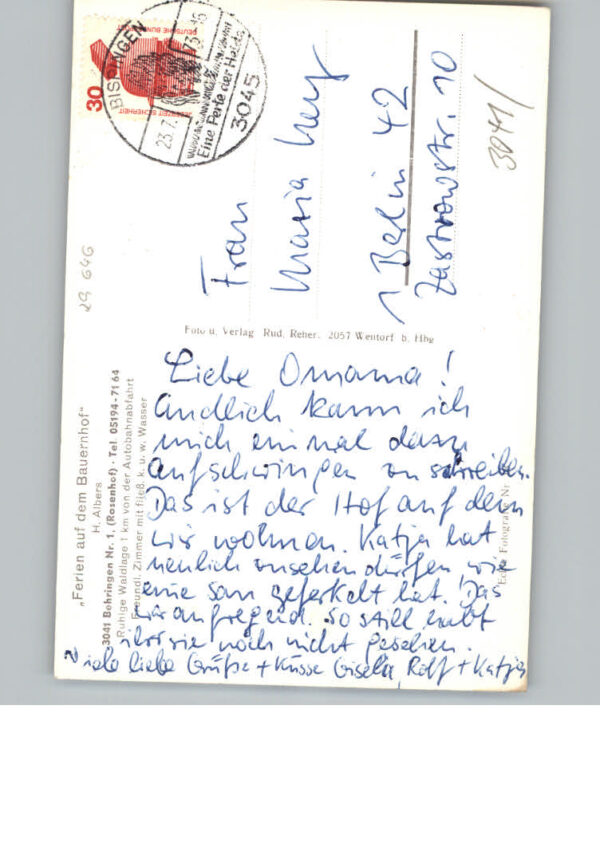 BISPINGEN
23.7.73-16
Eine Perle der Heide
3045
30
DEUTSCHE BUNDES
JEDERZEIT SICHERHEIT
3041/
29 646
Frau
Maria
1 Berlin 42
Zastrowstr. 10
Foto u. Verlag Rud. Reher, 2057 Wentorf b. Hbg
„Ferien auf dem Bauernhof"
H. Albers
3041 Behringen Nr. 1, (Rosenhof) · Tel. 05194-7164
Ruhige Waldlage 1 km von der Autobahnabfahrt
Freundl. Zimmer mit fließ. k. u. w. Wasser
Echte Fotografie Nr
Liebe Omama!
Endlich kann ich
mich einmal dazu
aufschwingen zu schreiben.
Das ist der Hof auf dem
wir wohnen. Katja hat
neulich zusehen dürfen wie
eine Sau geferkelt hat. Das
war aufregend. So still habt
ihr sie noch nicht gesehen.
Viele liebe Grüße + Küsse Gisela, Rolf + Katja